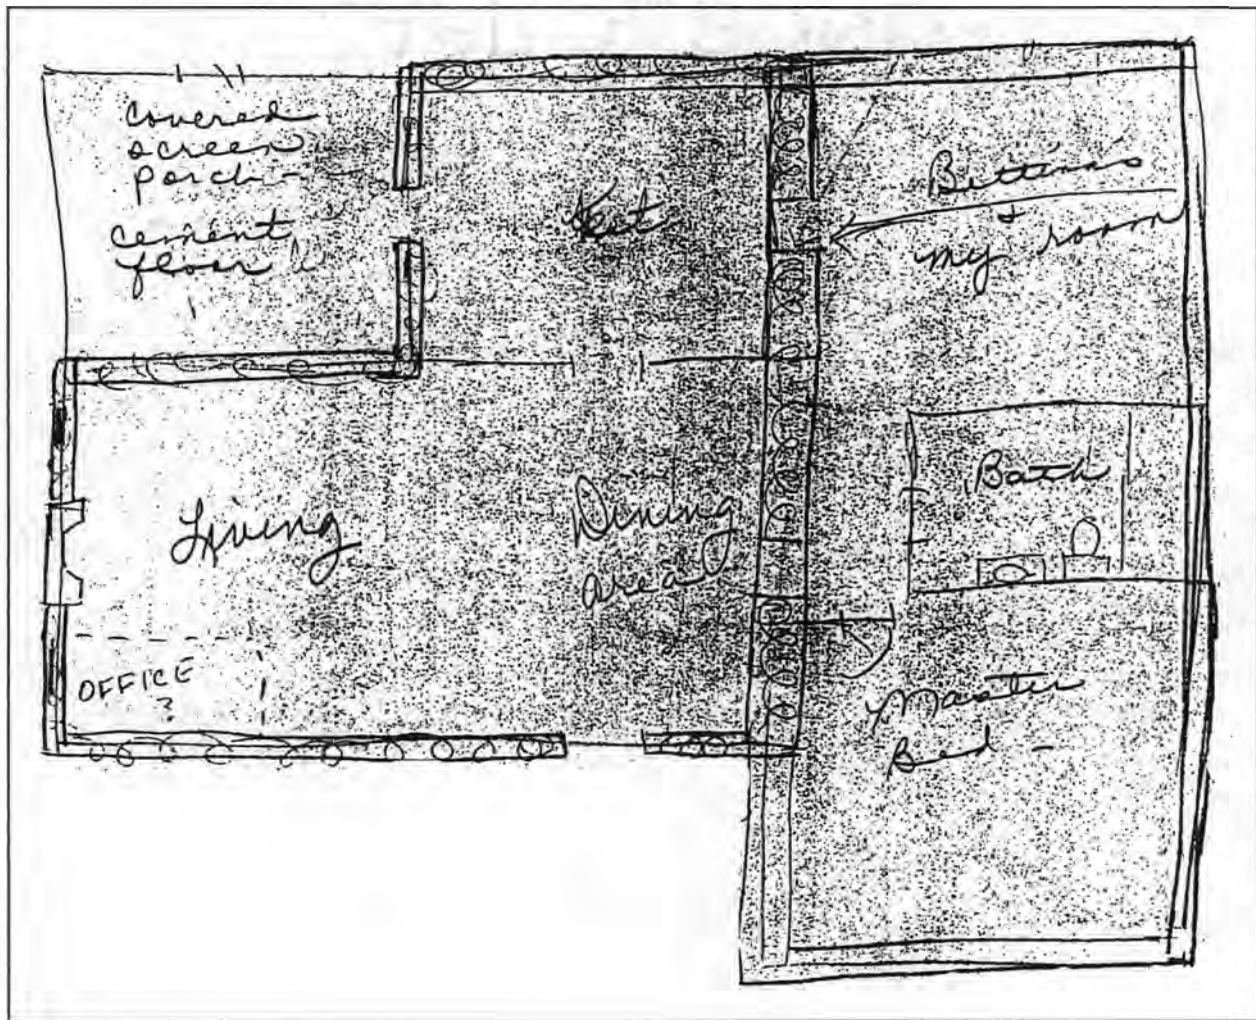 covered
screen
porch -
cement
floor
Kit
Bettina's
+
my room
Living
Dining
area
Bath
OFFICE
?
Master
Bed -